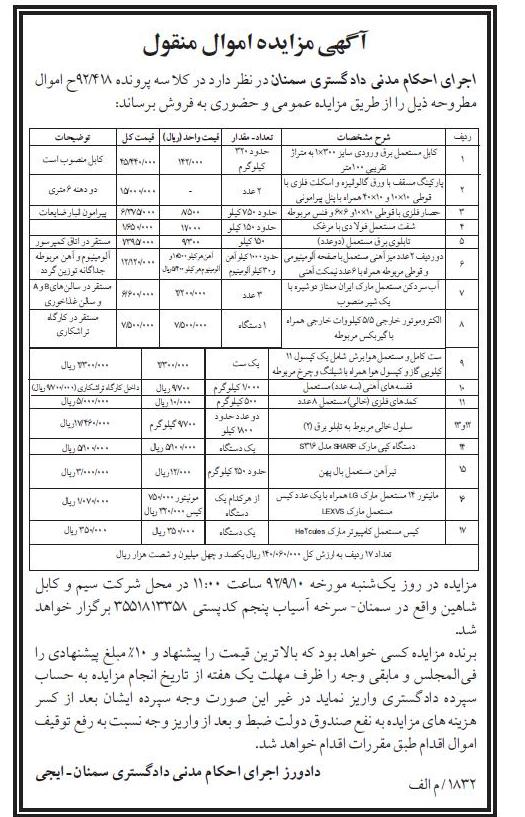 آگهی مزایده اموال منقول
اجرای احکام مدنی دادگستری سمنان در نظر دارد در کلاسه پرونده ۹۲/۴۱۸ح اموال
مطروحه ذیل را از طریق مزایده عمومی و حضوری به فروش برساند:
ردیف شرح مشخصات تعداد- مقدار قیمت واحد (ریال) قیمت کل توضیحات
۱ کابل مستعمل برق ورودی سایز ۳۰۰×۱ به متراژ تقریبی ۱۰۰متر حدود ۳۲۰ کیلوگرم ۱۴۲/۰۰۰ ۴۵/۴۴۰/۰۰۰ کابل منصوب است
۲ پارکینگ مسقف با ورق گالوانیزه و اسکلت فلزی با قوطی ۱۰×۱۰ و ۱۰×۴۰ همراه با پنل پیرامونی ۲ عدد - ۱۵/۰۰۰/۰۰۰ دو دهنه ۶ متری
۳ حصار فلزی با قوطی ۱۰×۱۰ و ۶×۶ و فنس مربوطه حدود ۷۵۰ کیلو ۸/۵۰۰ ۶/۳۷۵/۰۰۰ پیرامون انبار ضایعات
۴ شفت مستعمل فولادی با مرغک حدود ۱۵۰ کیلو
۵ تابلوی برق مستعمل (دوعدد) ۱۵۰ کیلو ۹/۳۰۰ مستقر در اتاق کمپرسور
۶ دو ردیف ۲ عدد میز آهنی مستعمل با صفحه آلومینیومی و قوطی مربوطه همراه با ۶ عدد نیمکت آهنی حدود ۱۰۰ کیلو آهن و ۳۰ کیلو آلومینیوم ۱۲/۱۲۰/۰۰۰ آلومینیوم و آهن مربوطه جداگانه توزین گردد
۷ آب سردکن مستعمل مارک ایران ممتاز دو شیره با یک شیر منصوب ۳ عدد ۲/۲۰۰/۰۰۰ ۶/۶۰۰/۰۰۰ مستقر در سالن های B و A و سالن غذاخوری
۸ الکتروموتور خارجی ۵/۵ کیلووات خارجی همراه با گیربکس مربوطه ۱ دستگاه ۷/۵۰۰/۰۰۰ ۷/۵۰۰/۰۰۰ مستقر در کارگاه تراشکاری
۹ ست کامل و مستعمل هوا برش شامل یک کپسول ۱۱ کیلویی گاز و کپسول هوا همراه با شیلنگ و چرخ مربوطه یک ست ۲/۳۰۰/۰۰۰ ۲/۳۰۰/۰۰۰ ریال
۱۰ قفسه های آهنی (سه عدد) مستعمل ۱/۰۰۰ کیلوگرم ۹/۷۰۰ ریال داخل کارگاه تراشکاری (۹/۷۰۰/۰۰۰ ریال)
۱۱ کمدهای فلزی (خالی) مستعمل ۸عدد ۵۰۰ کیلوگرم ۱۰/۰۰۰ ریال ۵/۰۰۰/۰۰۰ ریال
۱۲و۱۳ سلول خالی مربوط به تابلو برق (۲) دو عدد حدود ۱۸۰۰ کیلو ۹/۷۰۰ کیلوگرم ۱۷/۴۶۰/۰۰۰ ریال
۱۴ دستگاه کپی مارک SHARP مدل S۳۱۶ یک دستگاه ۵۱۰/۰۰۰ ریال ۵۱۰/۰۰۰ ریال
۱۵ تیرآهن مستعمل بال پهن حدود ۲۵۰ کیلوگرم ۱۲/۰۰۰ ریال ۳/۰۰۰/۰۰۰ ریال
۱۶ مانیتور ۱۴ مستعمل مارک LG همراه با یک عدد کیس مستعمل مارک LEXVS از هرکدام یک دستگاه مونیتور ۷۵۰/۰۰۰ کیس ۳۲۰/۰۰۰ ریال ۱/۰۷۰/۰۰۰ ریال
۱۷ کیس مستعمل کامپیوتر مارک HeTcules یک دستگاه ۳۵۰/۰۰۰ ریال ۳۵۰/۰۰۰ ریال
تعداد ۱۷ ردیف به ارزش کل ۱۴۰/۰۶۰/۰۰۰ ریال یکصد و چهل میلیون و شصت هزار ریال
مزایده در روز یک شنبه مورخه ۹۲/۹/۱۰ ساعت ۱۱:۰۰ در محل شرکت سیم و کابل
شاهین واقع در سمنان- سرخه آسیاب پنجم کدپستی ۳۵۵۱۸۱۳۳۵۸ برگزار خواهد
شد.
برنده مزایده کسی خواهد بود که بالاترین قیمت را پیشنهاد و ۱۰٪ مبلغ پیشنهادی را
فی المجلس و مابقی وجه را ظرف مهلت یک هفته از تاریخ انجام مزایده به حساب
سپرده دادگستری واریز نماید در غیر این صورت وجه سپرده ایشان بعد از کسر
هزینه های مزایده به نفع صندوق دولت ضبط و بعد از واریز وجه نسبت به رفع توقیف
اموال اقدام طبق مقررات اقدام خواهد شد.
دادورز اجرای احکام مدنی دادگستری سمنان - ایجی
۱۸۳۲/م الف